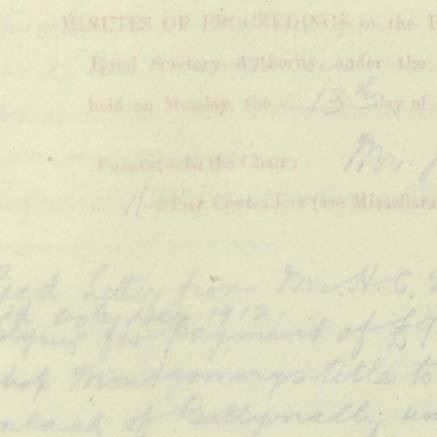 MINUTES OF PROCEEDINGS of the
Rural Sanitary Authority, under the
held on Monday, the 13th day of
Present:—In the Chair: Mr.
11 other Councillors (see Miscellan
Read Letter from Mr. H. C.
Dec 1912,
for payment of £9
of Montgomerys title to
of Ballynally